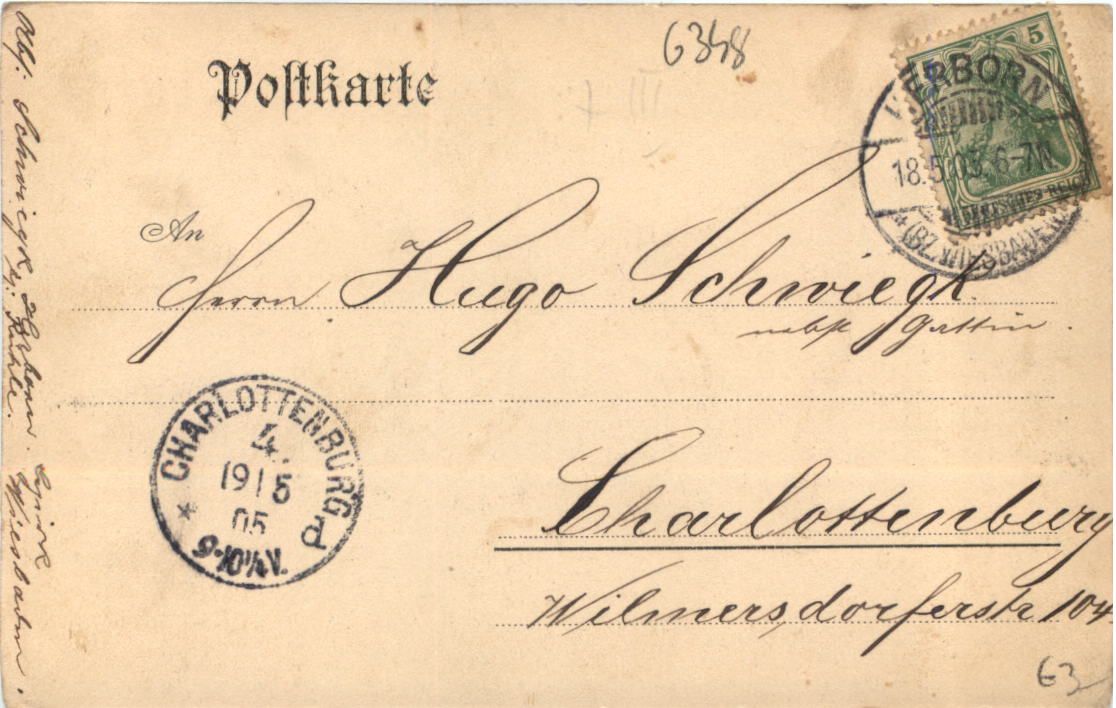 6348
Postkarte
5
DEUTSCHES REICH
HERBORN
18.5.05. 6-7N.
* (BZ. WIESBADEN)
An
Herrn Hugo Schwiegk.
nebst Gattin.
CHARLOTTENBURG
4.
19 | 5
05
9-10½V.
* d
Charlottenburg
Wilmersdorferstr 104.
63
Abs: Schwiegk, Herborn. Bezirk Wiesbaden.